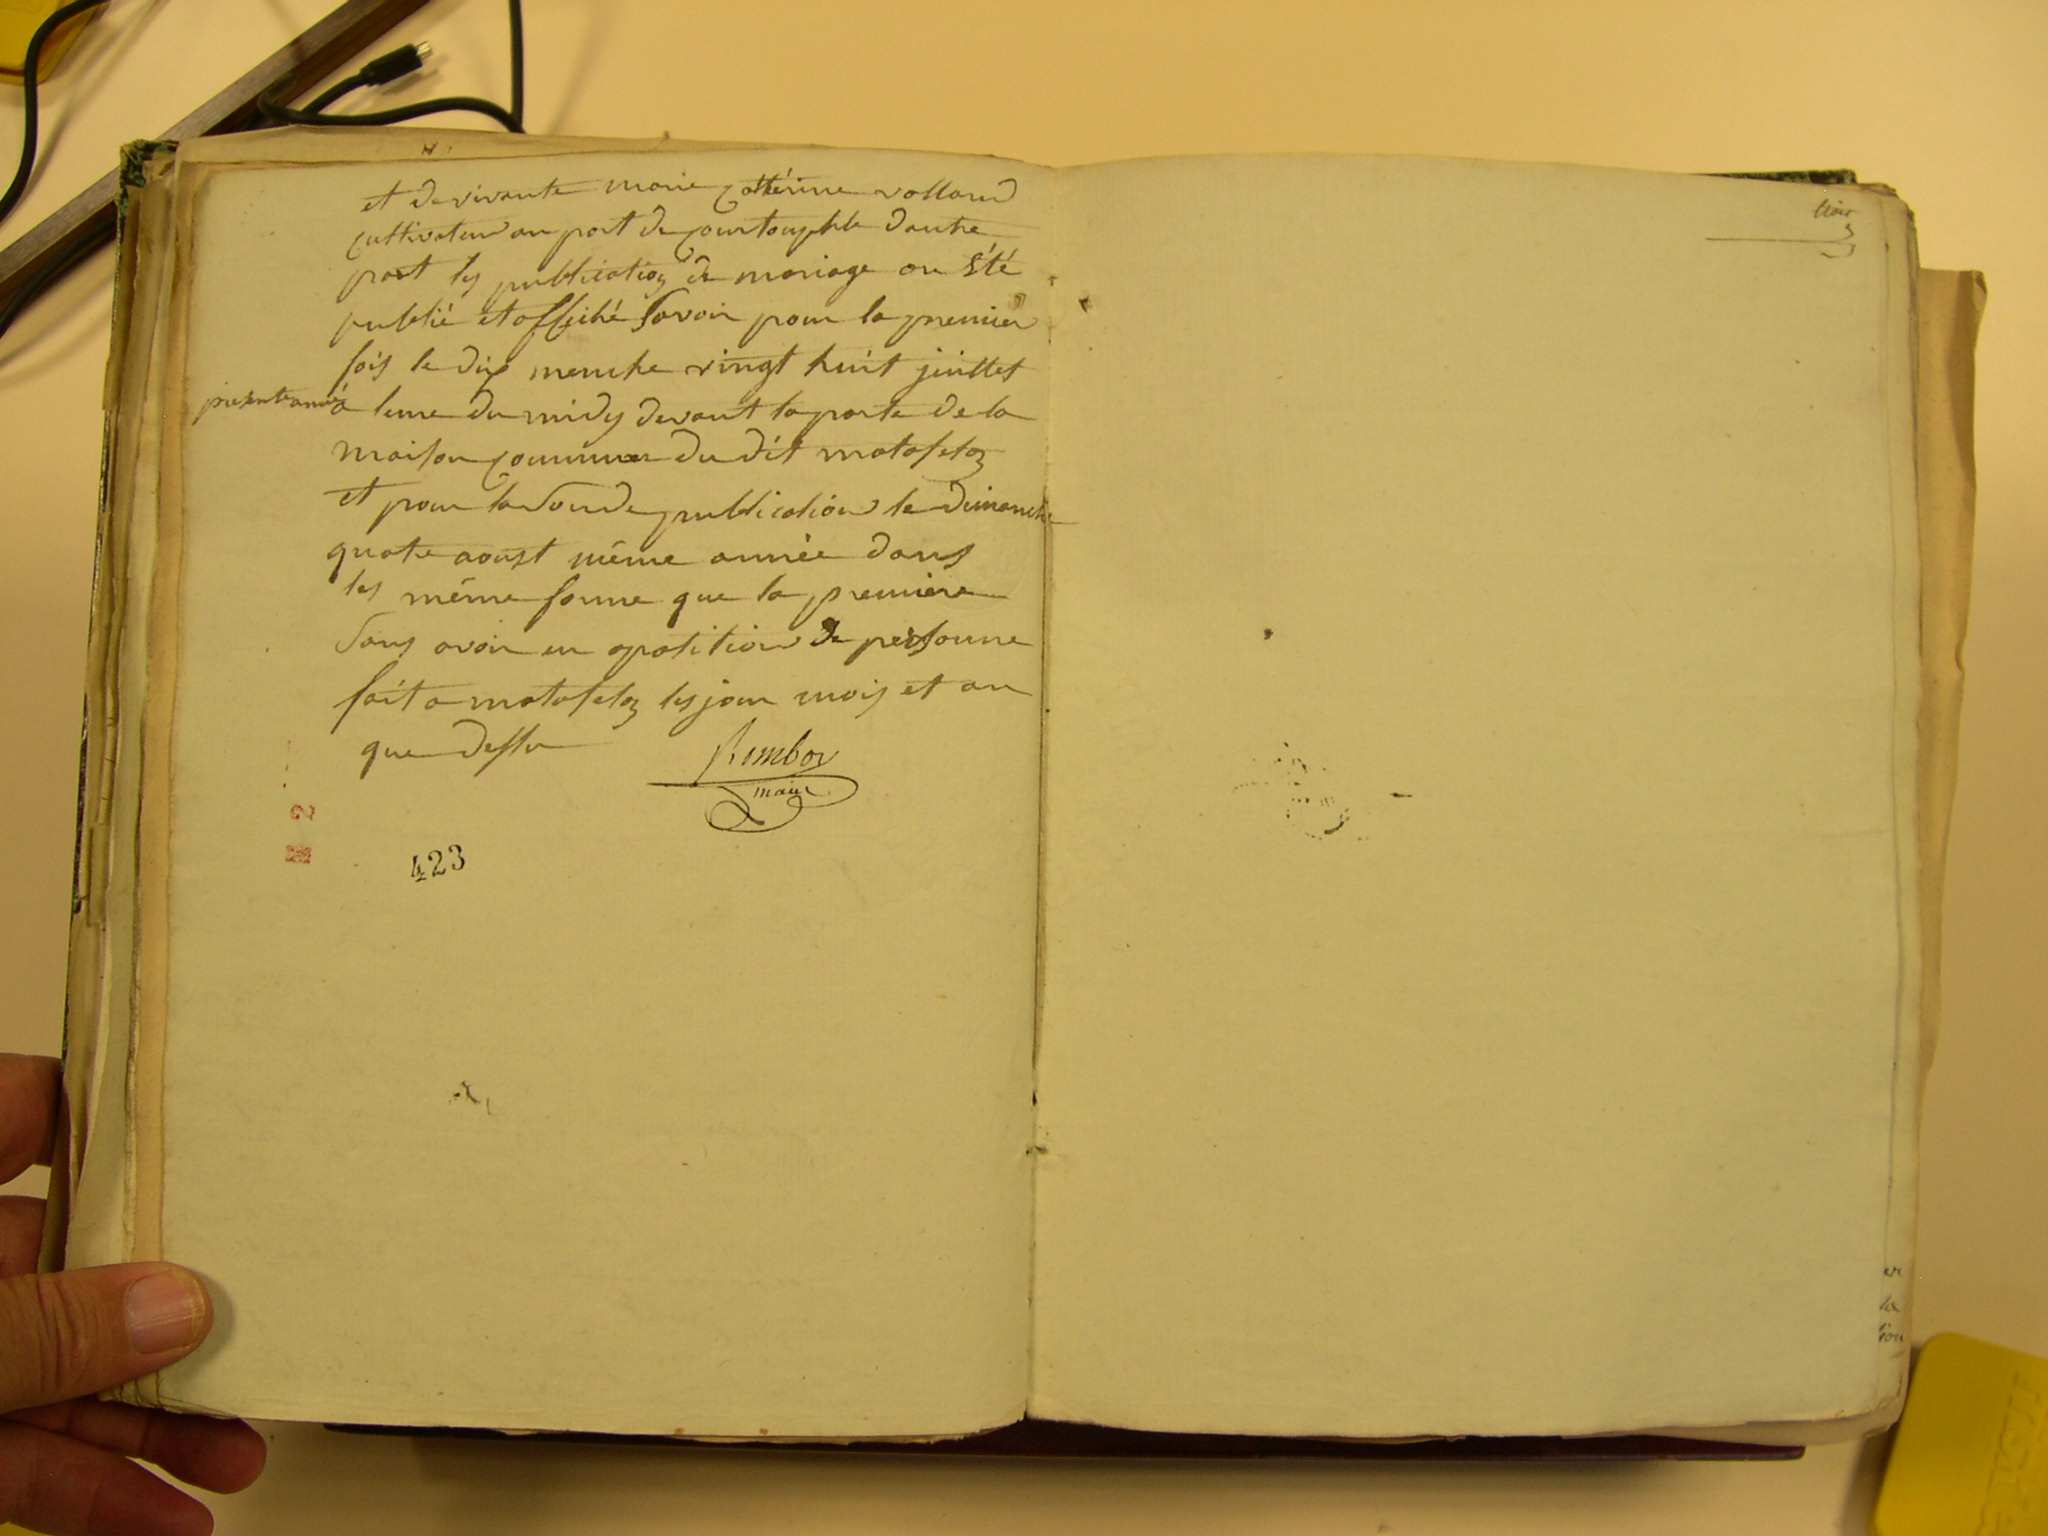 et de vivante marie Cattérine volland
Cultivateur au port de Courtouphle dautre
part les publication de mariage on été
publié et affiché Savoir pour la premier
fois le dix menche vingt huit juillet
présente année
à leure du midy devant la porte de la
Maison Commune du dit matafelon
et pour la Seconde publication le dimanche
quatre aoust même année dans
les même forme que la premiere
Sans avoir eu opotition de personne
fait a matafelon les jour mois et an
que dessu
Rimboz
maire
423
2